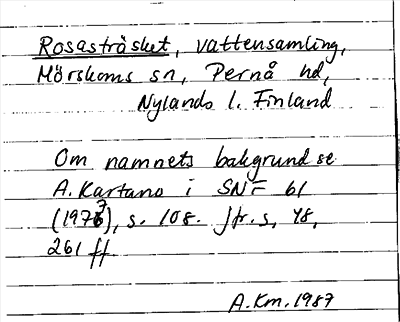 Rosasträsket, vattensamling,
Mörskoms sn, Pernå hd,
Nylands l. Finland
Om namnets bakgrund se
A. Kartano i SNF 61
(1977), s. 108. Jfr. s, 48,
261 ff.
A.Km.1987